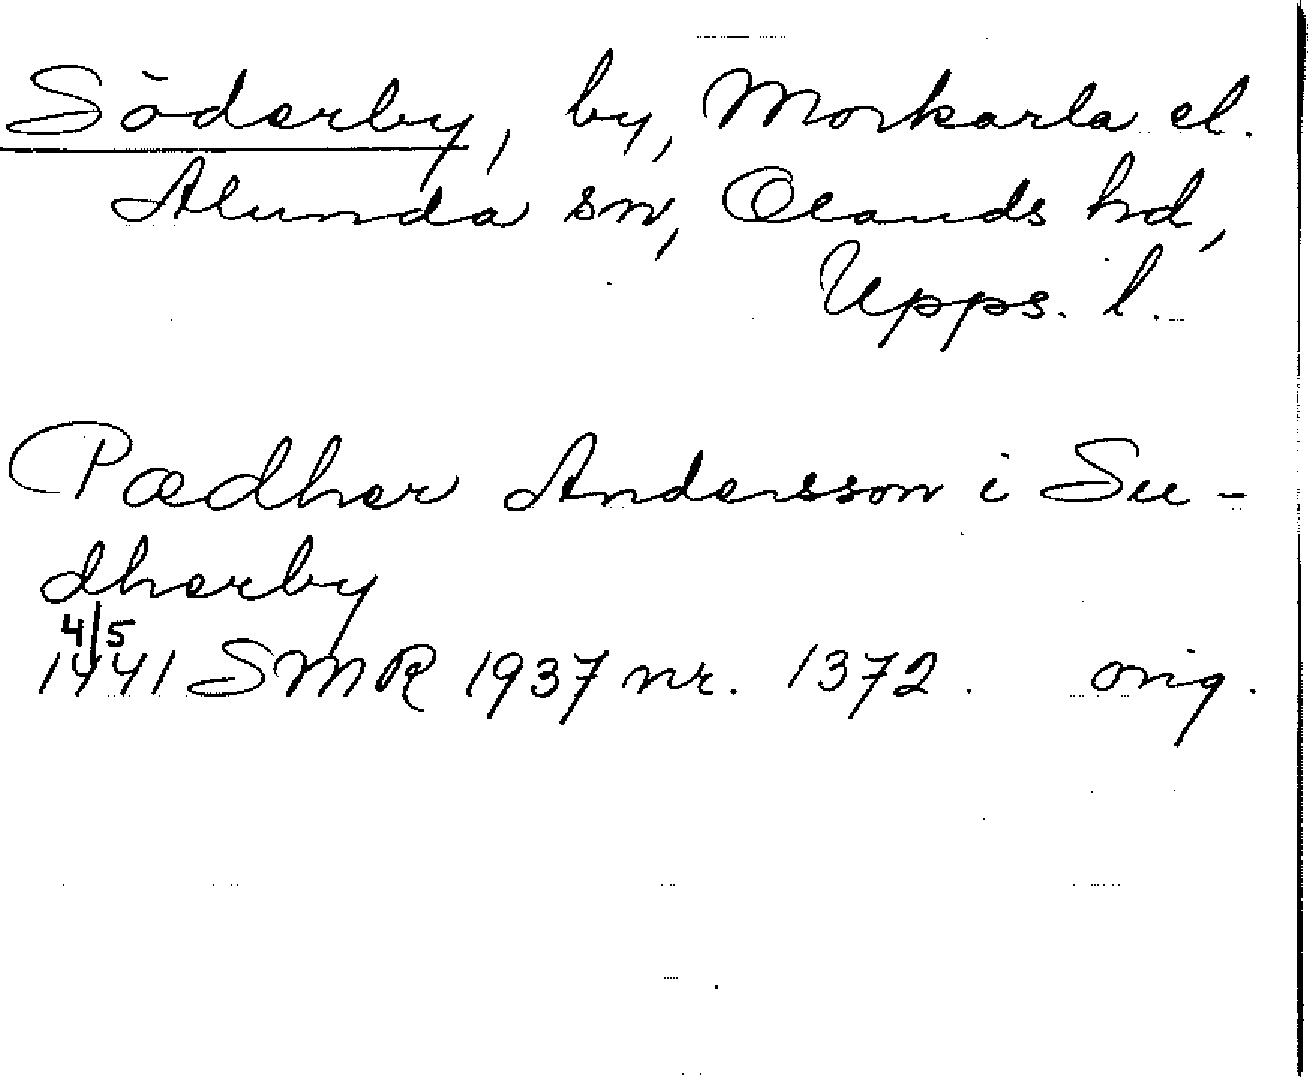 Söderby, by, Morkarla el.
Alunda sn, Olands hd,
Upps. l.
Pædher Andersson i Su-
dherby
4/5
1441 SMR 1937 nr. 1372. orig.